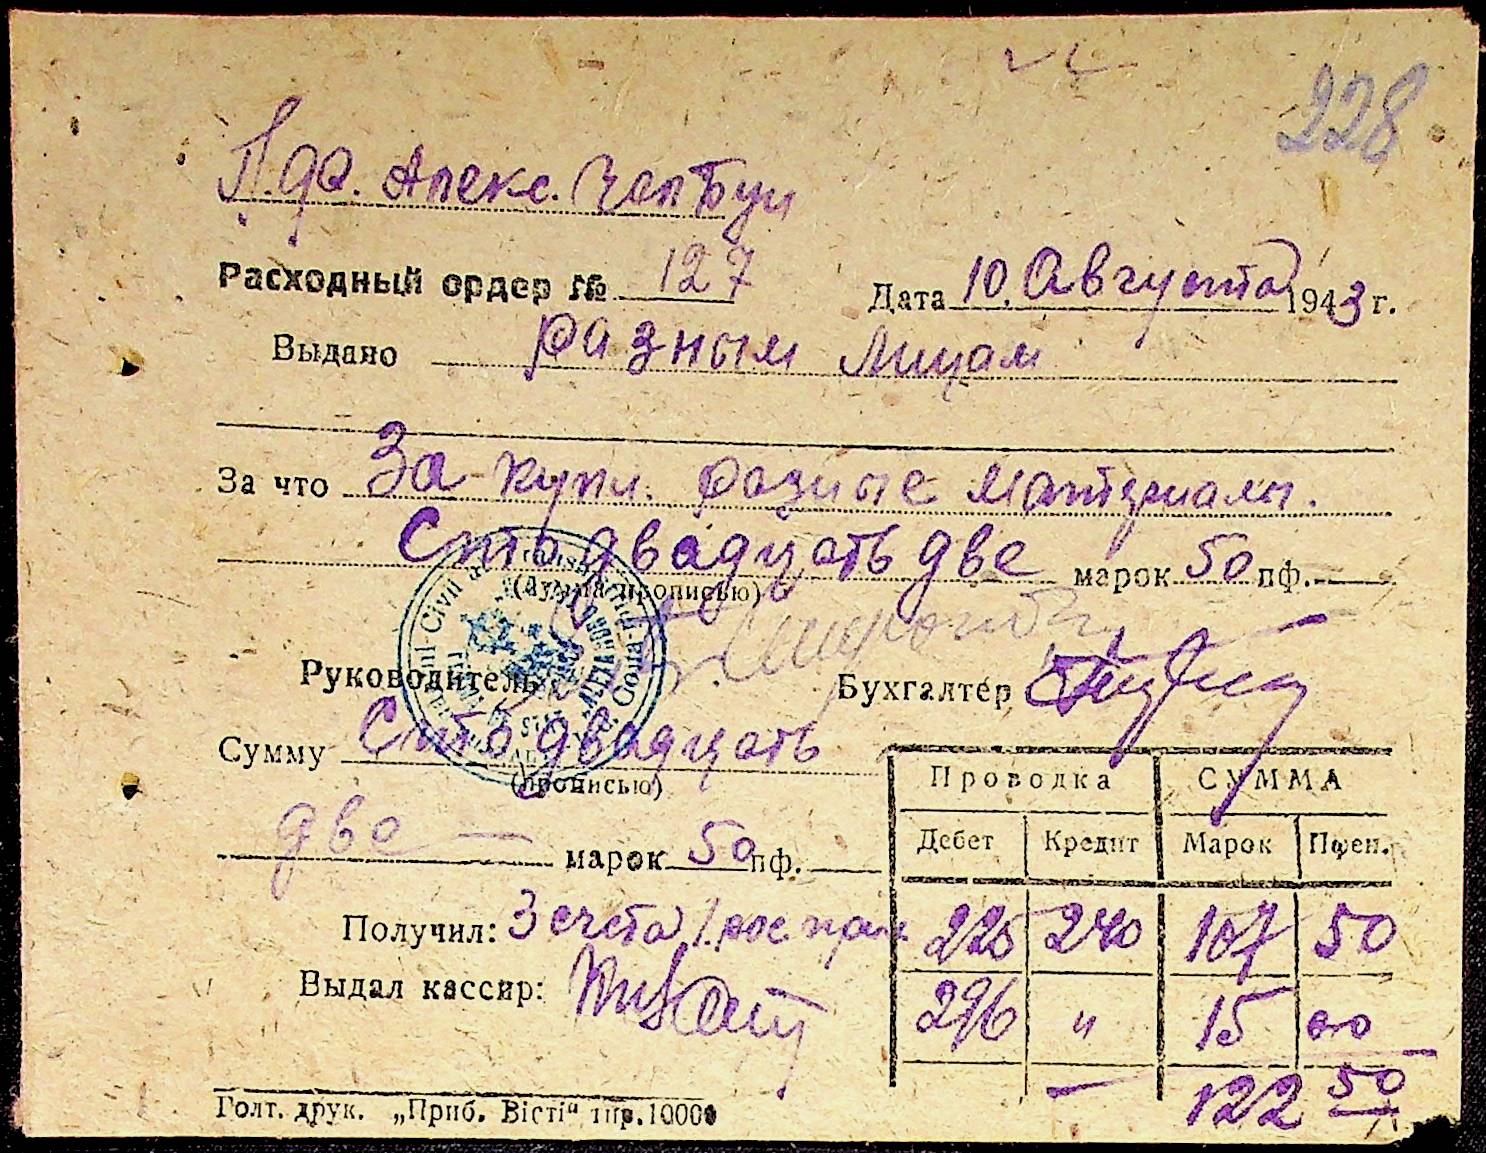 228
П.др. Алекс.
Расходный ордер № 127 Дата 10 Августа 1943 г.
Выдано разным лицам
За что За купл. разные материалы.
Сто двадцать две марок 50 пф.
(сумма прописью)
Руководитель Бухгалтер
Сумму Сто двадцать
(прописью)
две — марок 50 пф.
Проводка СУММА
Дебет Кредит Марок Пфен.
Получил: 3 счета 1 рос
225 240 107 50
Выдал кассир:
296 " 15 00
122 50
Голт. друк. „Приб. Вісті“ тир. 10000